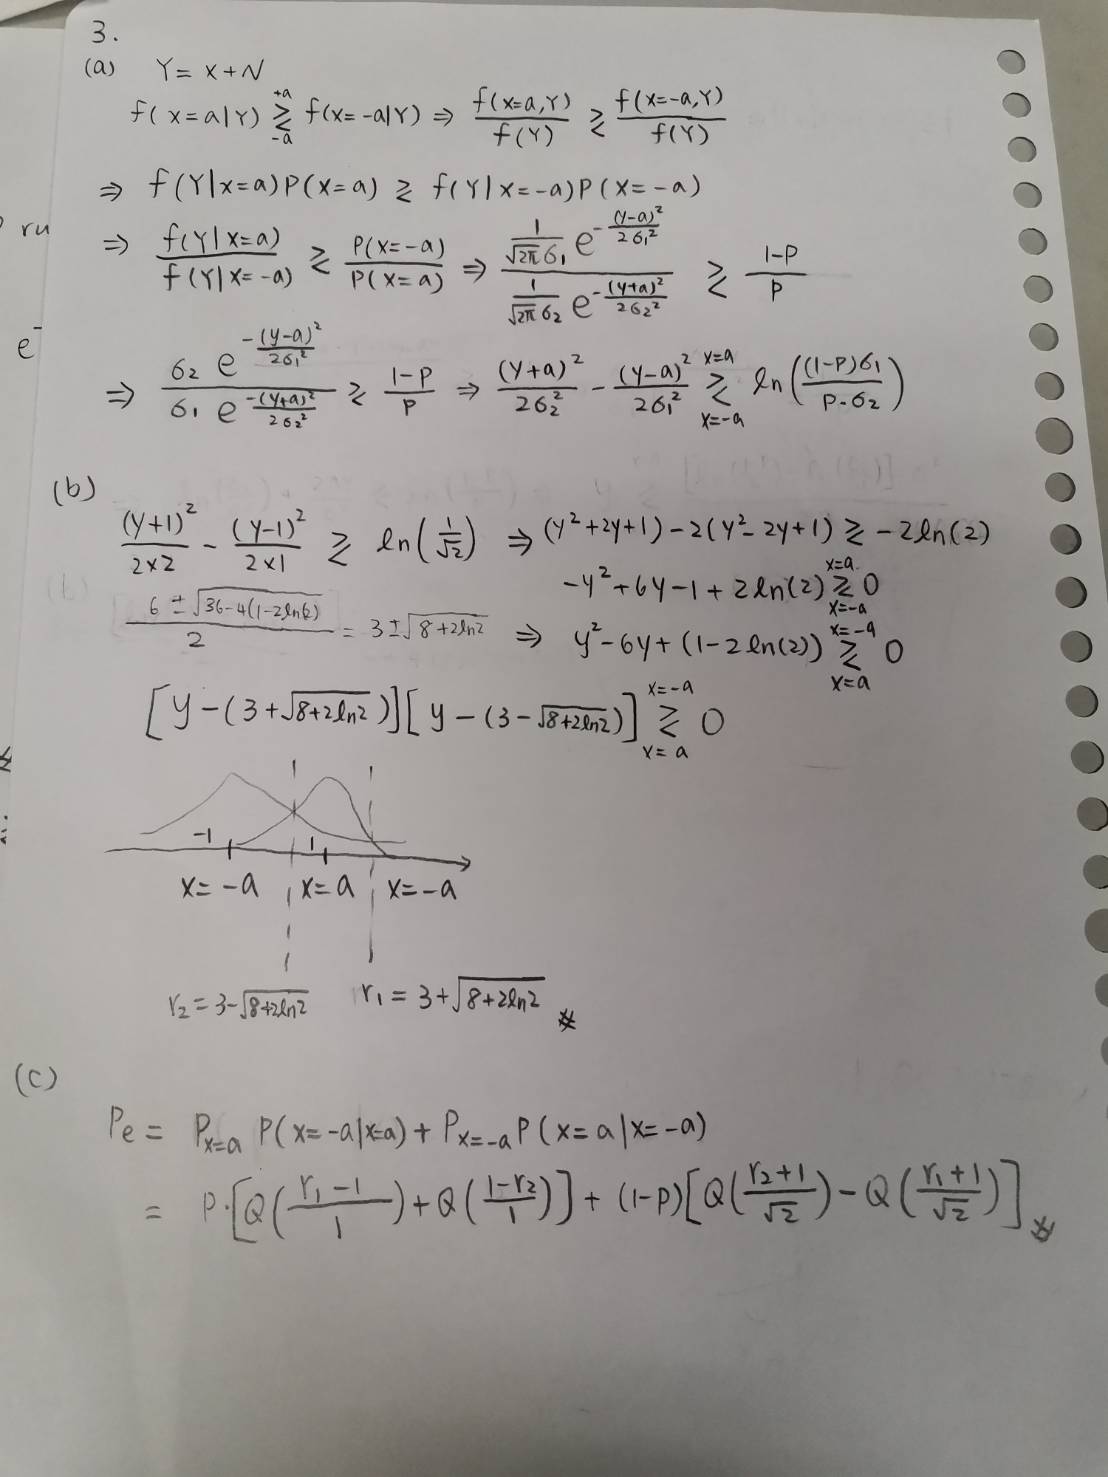 3.
(a) Y = X + N
f(x=a|Y) ≷ +a -a f(x=-a|Y) ⇒ f(x=a,Y)/f(Y) ≷ f(x=-a,Y)/f(Y)
⇒ f(Y|x=a)P(x=a) ≷ f(Y|x=-a)P(x=-a)
ru
⇒ f(Y|x=a)/f(Y|x=-a) ≷ P(x=-a)/P(x=a) ⇒ (1/(√2π σ₁) e^(-(Y-a)²/2σ₁²))/(1/(√2π σ₂) e^(-(Y+a)²/2σ₂²)) ≷ (1-P)/P
e⁻
⇒ (σ₂ e^(-(y-a)²/2σ₁²))/(σ₁ e^(-(y+a)²/2σ₂²)) ≷ (1-P)/P ⇒ (Y+a)²/2σ₂² - (Y-a)²/2σ₁² ≷ x=a x=-a ln((1-P)σ₁/P·σ₂)
(b)
(Y+1)²/2×2 - (Y-1)²/2×1 ≷ ln(1/√2) ⇒ (y²+2y+1)-2(y²-2y+1) ≷ -2ln(2)
-y²+6y-1+2ln(2) ≷ x=a. x=-a 0
(6±√36-4(1-2ln2))/2 = 3±√8+2ln2 ⇒ y²-6y+(1-2ln(2)) ≷ x=-a x=a 0
[y-(3+√8+2ln2)][y-(3-√8+2ln2)] ≷ x=-a x=a 0
-1 1
x=-a x=a x=-a
r₂=3-√8+2ln2 r₁=3+√8+2ln2 #
(c)
Pe = Px=a P(x=-a|x=a) + Px=-a P(x=a|x=-a)
= P·[Q((r₁-1)/1)+Q((1-r₂)/1)] + (1-P)[Q((r₂+1)/√2) - Q((r₁+1)/√2)] #